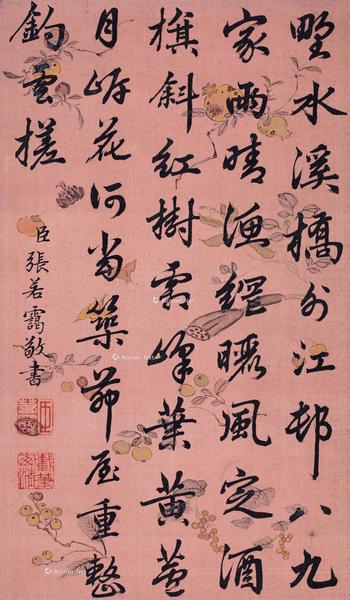 野水溪橋外江邨八九
家雨晴漁網曬風定酒
旗斜紅樹霜峰葉黃蘆
月岸花何當築茆屋重整
釣雲槎
臣張若靄敬書
Artron.Net